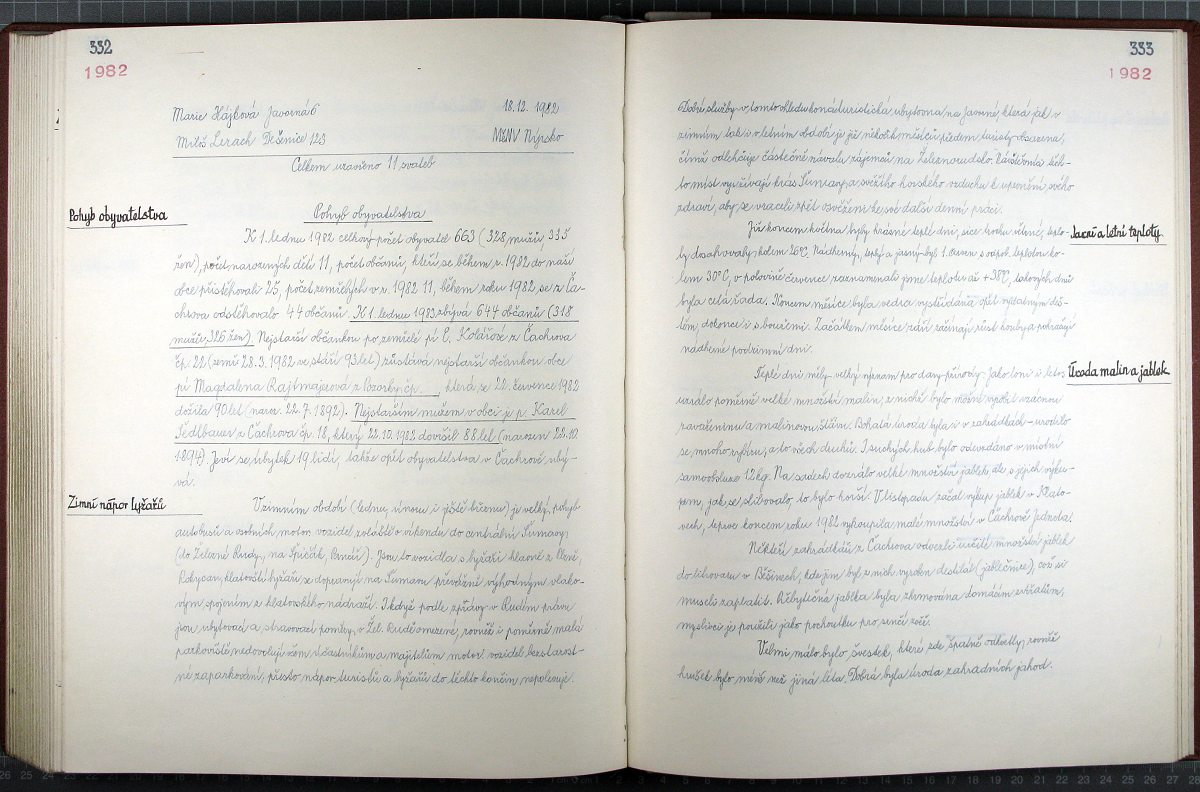 332
1982
Marie Hájková Javorná 6 18.12.1982
Miloš Lerach Dešenice 123 MěNV Nýrsko
Celkem uzavřeno 11 svateb
Pohyb obyvatelstva
Pohyb obyvatelstva
K 1. lednu 1982 celkový počet obyvatel 663 (328 mužů, 335
žen), počet narozených dětí 11, počet občanů, kteří se během r. 1982 do naší
obce přistěhovali 25, počet zemřelých v r. 1982 11, během roku 1982 se z Ča-
chrova odstěhovalo 44 občanů. K 1. lednu 1983 zbývá 644 občanů (318
mužů, 326 žen). Nejstarší občankou po zemřelé pí E. Kolářové z Čachrova
čp. 22 (zemř. 28.3.1982 ve stáří 93 let) zůstává nejstarší občankou obce
pí Magdalena Rajtmajerová z Kzorky čp. která se 22. července 1982
dožila 90 let (naroz. 22.7.1892). Nejstarším mužem v obci je p. Karel
Sedlbauer z Čachrova čp. 18, který 22.10.1982 dovršil 88 let (narozen 22.10.
1894). Jeví se úbytek 19 lidí, takže opět obyvatelstva v Čachrově ubý-
vá.
Zimní nápor lyžařů
V zimním období (lednu, únoru i ještě březnu) je velký pohyb
autobusů a osobních motor. vozidel zvláště o víkendu do centrální Šumavy
(do Železné Rudy, na Špičák, Pancíř). Jsou to vozidla s lyžaři hlavně z Plzně,
Rokycan, klatovští lyžaři se dopravují na Šumavu převážně výhodným vlako-
vým spojením z klatovského nádraží. I když podle zprávy v Rudém právu
jsou ubytovací a stravovací poměry v Žel. Rudě omezené, rovněž i poměrně malá
parkoviště nedovolují všem účastníkům a majitelům motor. vozidel bezstarost-
né zaparkování, přesto nápor turistů a lyžařů do těchto končin nepolevuje.
333
1982
Dobré služby v tomto ohledu koná turistická ubytovna na Javorné, která jak v
zimním tak i v letním období je již několik měsíců předem turisty obsazena,
čímž odlehčuje částečně návalu zájemců na Železnorudsko. Návštěvníci těch-
to míst využívají krás Šumavy a svěžího horského vzduchu k upevnění svého
zdraví, aby se vraceli zpět osvěženi ke své další denní práci.
Jarní a letní teploty
Již koncem května byly krásné teplé dni, sice trochu větrné, teplo-
ty dosahovaly kolem 26°C. Nádherný, teplý a jasný byl 1. červen s odpol. teplotou ko-
lem 30°C, v polovině července zaznamenali jsme teplotu až +38°C, takových dnů
byla celá řada. Koncem měsíce byla vedra vystřídána opět vydatným deš-
těm, dokonce i s bouřemi. Začátkem měsíce září začínají růst houby a pokračují
nádherné podzimní dni.
Úroda malin a jablek
Teplé dni měly velký význam pro dary přírody. Jako loni i letos
uzrálo poměrně velké množství malin, z nichž bylo možné vyrobit vzácnou
zavařeninu a malinovou šťávu. Bohatá úroda byla i v zahrádkách - urodilo
se mnoho rybízu, a to všech druhů. I suchých hub bylo odevzdáno v místní
samoobsluze 12 kg. Na sadech dozrálo velké množství jablek ale s jejich výku-
pem, jak se slibovalo, to bylo horší. V listopadu začal výkup jablek v Klato-
vech, teprve koncem roku 1982 vykoupila malé množství v Čachrově Jednota.
Někteří zahrádkáři z Čachrova odvezli určité množství jablek
do lihovaru v Běšinech, kde jim byl z nich vyroben destilát (jablečnice), což si
museli zaplatit. Přebytečná jablka byla zkrmována domácím zvířatům,
myslivci je použili jako pochoutku pro srnčí zvěř.
Velmi málo bylo švestek, které zde špatně odkvetly, rovněž
hrušek bylo méně než jiná léta. Dobrá byla úroda zahradních jahod.